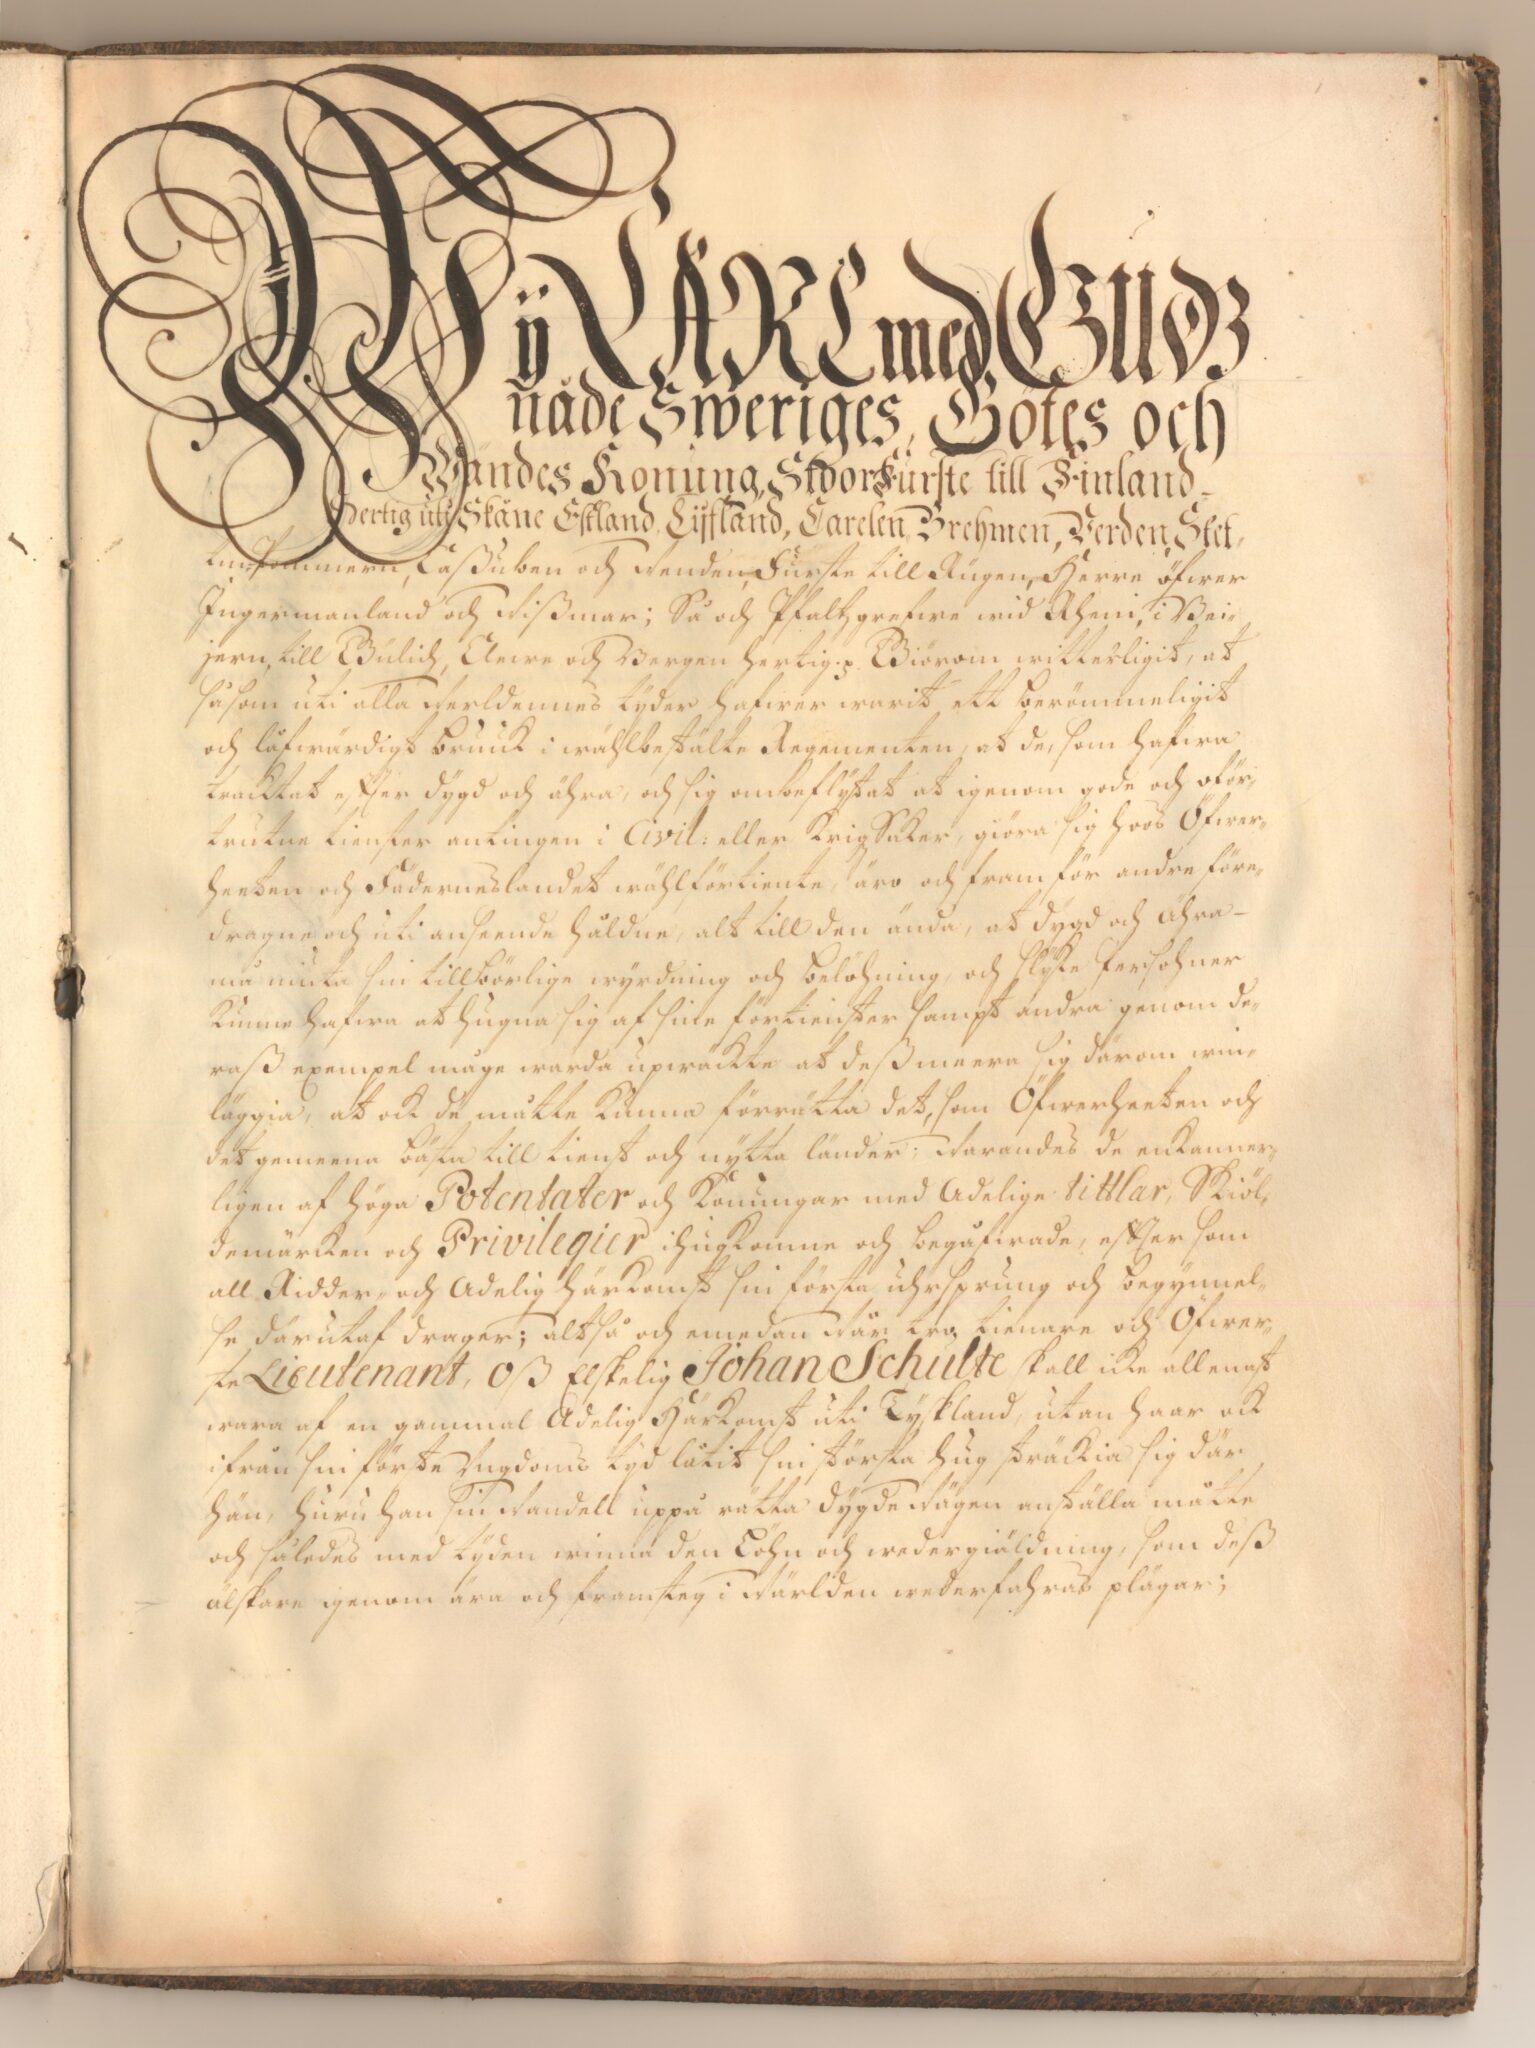 Wÿ CARL med GUDZ
nåde Sweriges, Götes och
Wändes Konung, StoorFurste till Finland,
Hertig uti Skåne Estland, Lijffland, Carelen, Brehmen, Verden, Stet,
tin Pommern, Caßuben och Wenden, Furste till Rügen, Herre öfwer
Ingermanland och Wißmar; Så och Pfaltzgrefwe wid Rhein, i Beÿ-
jern, till Gülich, Clewe och Bergen Hertig. p. Giörom witterligit, at
såsom uti alla werldennes tÿder hafwer warit ett berömmeligit
och låfwärdigt bruuk i wählbestälte Regementen, at de, som hafwa
tracktat effter dÿgd och ähra, och sig ombeflÿtat at igenom gode och oför,
trutne tienster antingen i Civil: eller KrigSaker, giöra sig hoos Öfwer-
heeten och Fäderneslandet wählförtiente, äro och framför andre före-
dragne och uti anseende håldne, alt till den ända, at dÿgd och ähra
må niuta sin tillbörlige wÿrdning och belöhning, och slÿke Persohner
kunne hafwa at hugna sig af sine förtienster sampt andra genom de-
raß exempel måge warda upwäckte at deß meera sig därom win-
läggia, at ock de måtte kunna förrätta det, som Öfwerheeten och
det gemeena bästa till tienst och nÿtta länder; Warandes de enkanner-
ligen af höga Potentater och Konungar med Adelige tittlar, Skiöl-
demärken och Privilegier ihugkomne och begåfwade, effter som
all Ridder- och Adelig härkomst sin första uhrsprung och begÿnnel-
se därutaf drager; altså och emedan Wår tro tienare och Öfwer-
ste Lieutenant, Oß Elskelig Johan Schulte skall icke allenast
wara af en gammal Adelig Härkomst uti Tÿskland, utan haar ock
ifrån sin förste Ungdoms tÿd låtit sin största hug sträckia sig där
hän, huru han sin Wandell uppå rätta Dÿgde Wägen anställa måtte
och således med tÿden winna den Löhn och wedergiäldning, som deß
älskare igenom ära och framsteg i Wärlden wederfahras plägar;